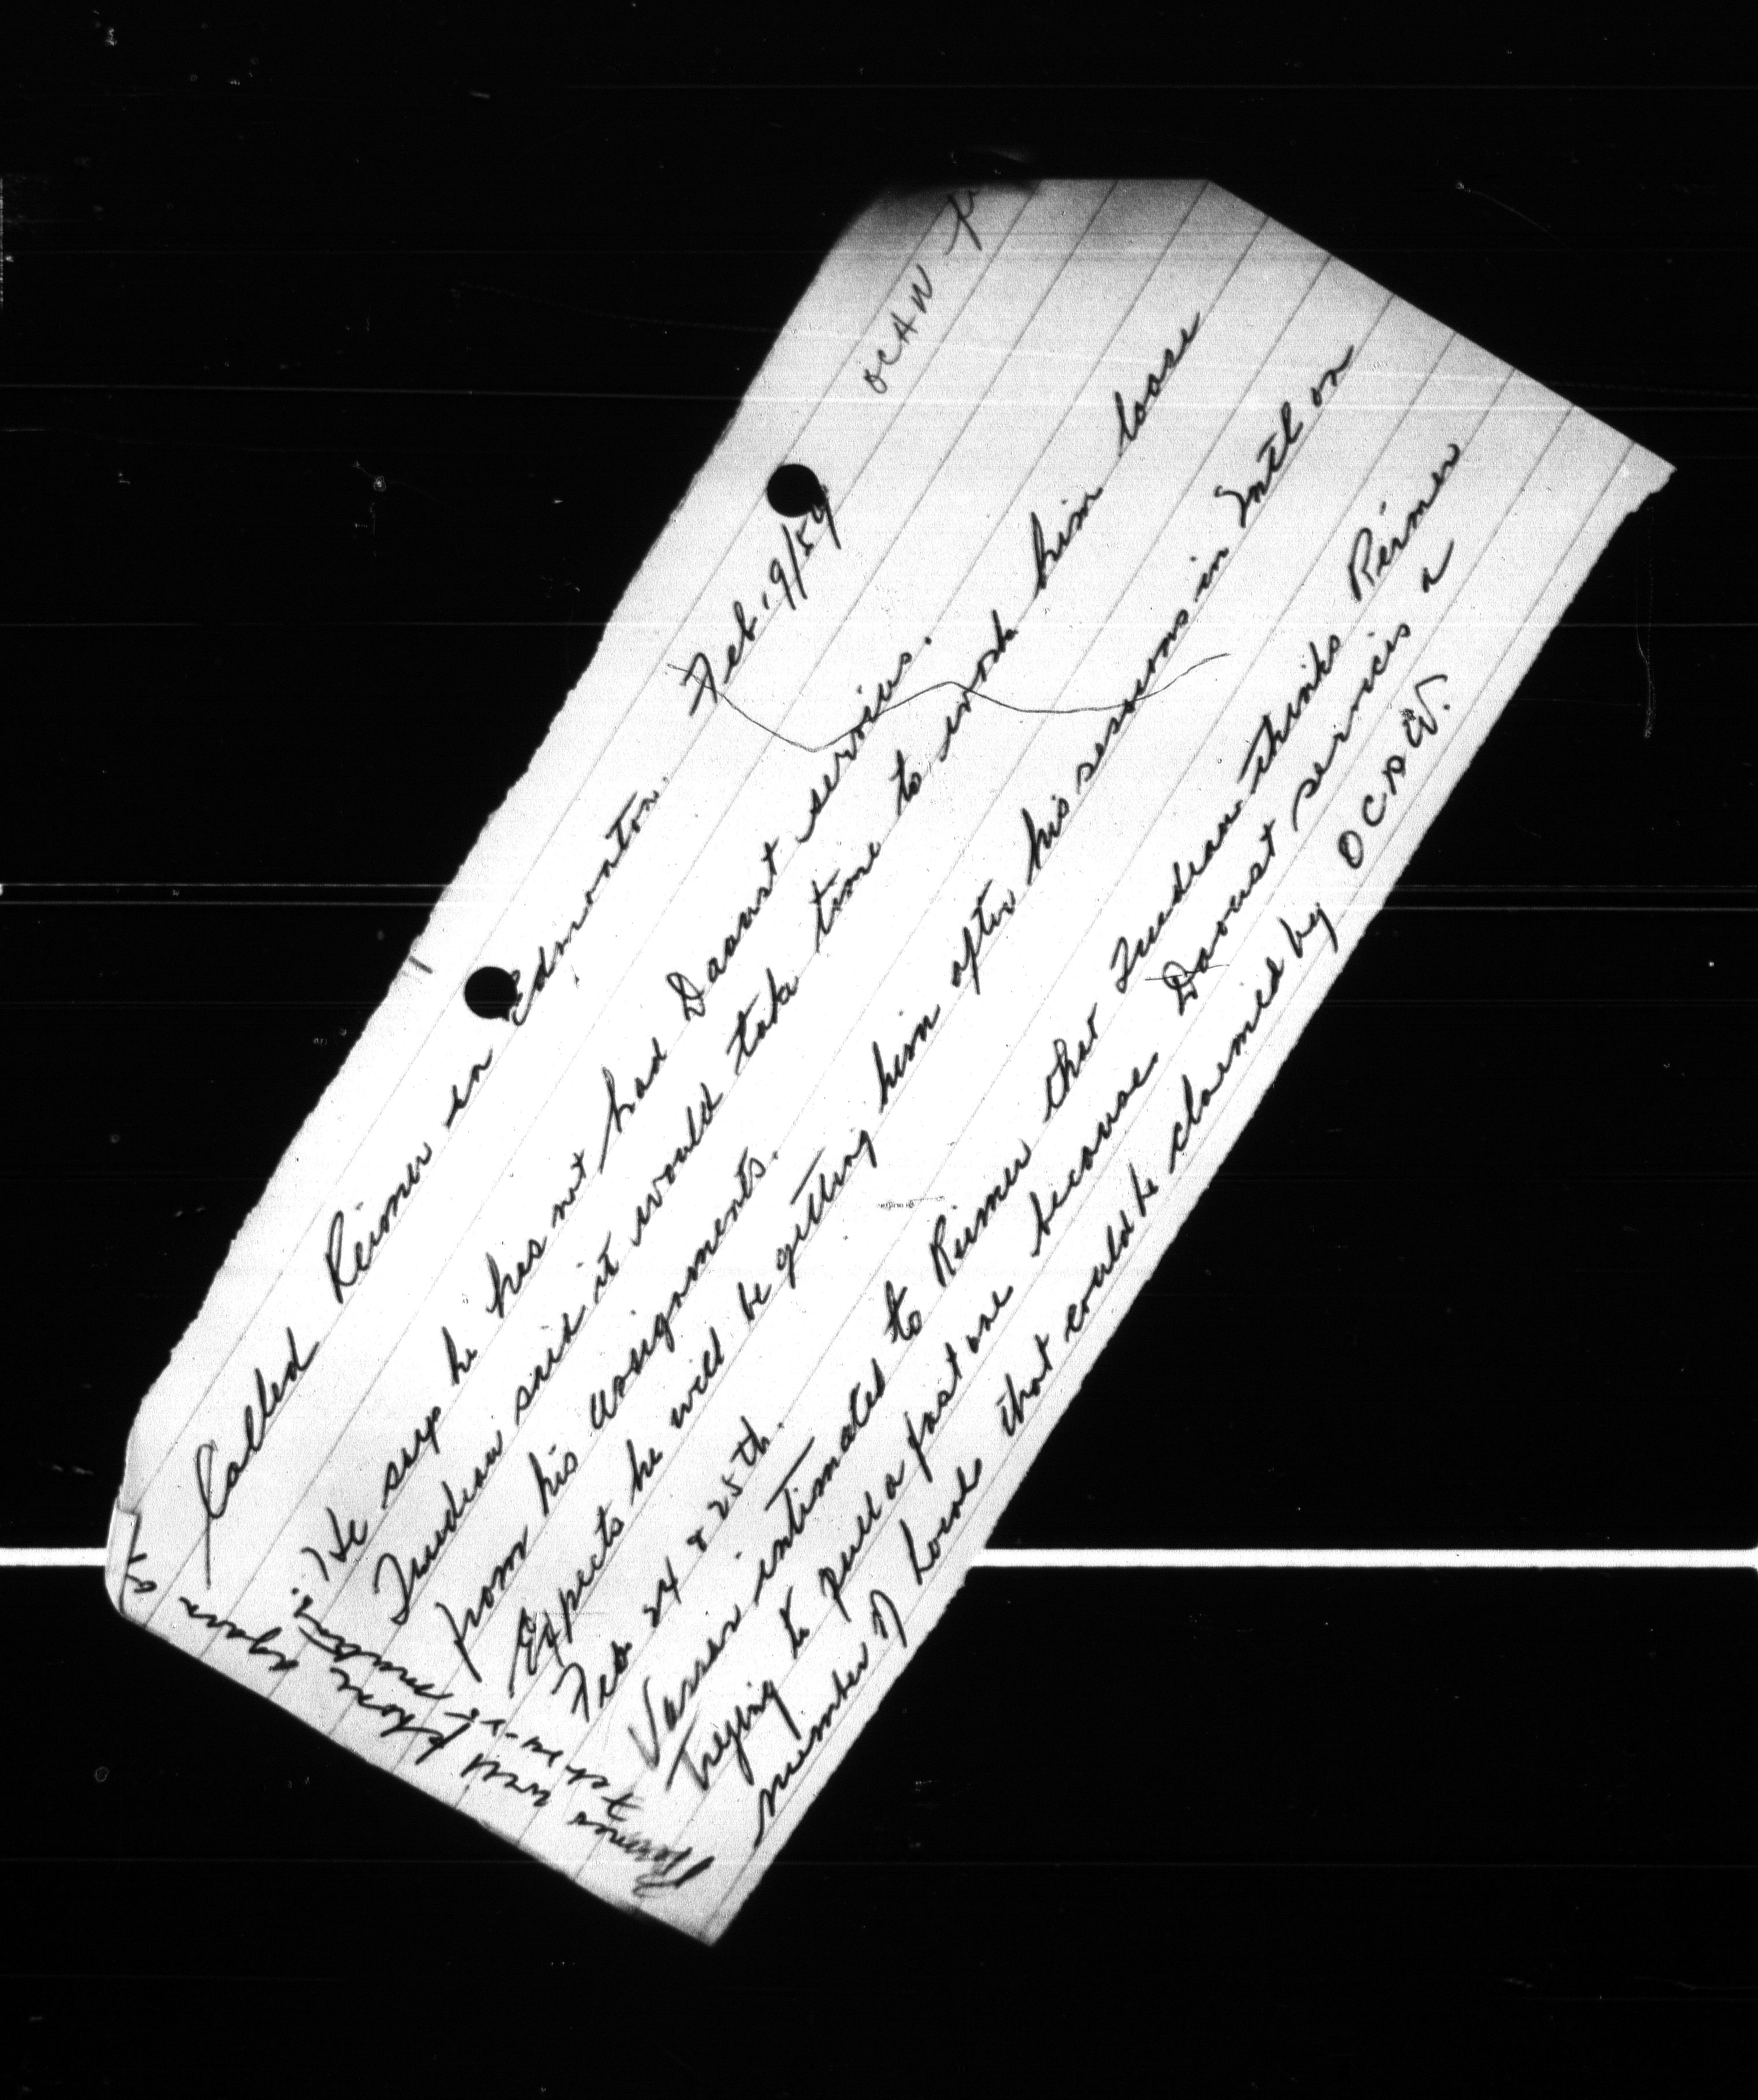 OCAW
Called Reimer in Edmonton. Feb. 9/59
He says he has not had Daoust services.
Trudeau said it would take time to work him loose
from his assignments.
Expects he will be getting him after his sessions in Mtl on
Feb 24 & 25th.
intimated to Reimer that Trudeau thinks Reimer
Trying to pull a fast one because Daoust services a
number of locals that could be claimed by OCAW.
Reimer will phone again
Feb 24-25